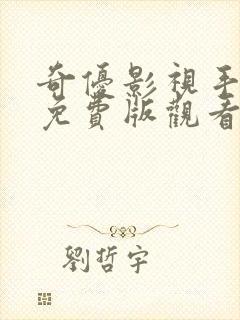 奇優影視手
免費版觀看
劉哲宇